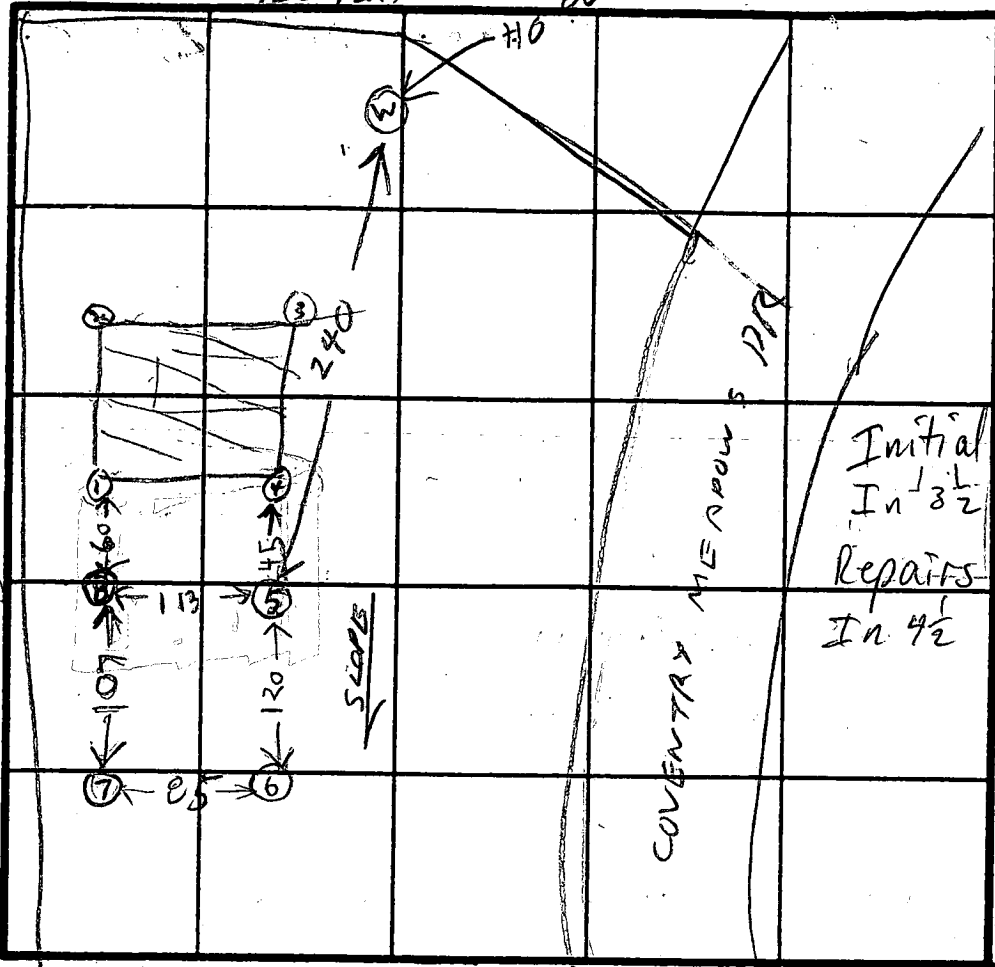 #6
W
2
3
240
1
4
60
45
8
113
5
107
120
SLOPE
7
85
6
COVENTRY MEADOWS DR
Initial
In 3 1/2
Repairs
In 4 1/2